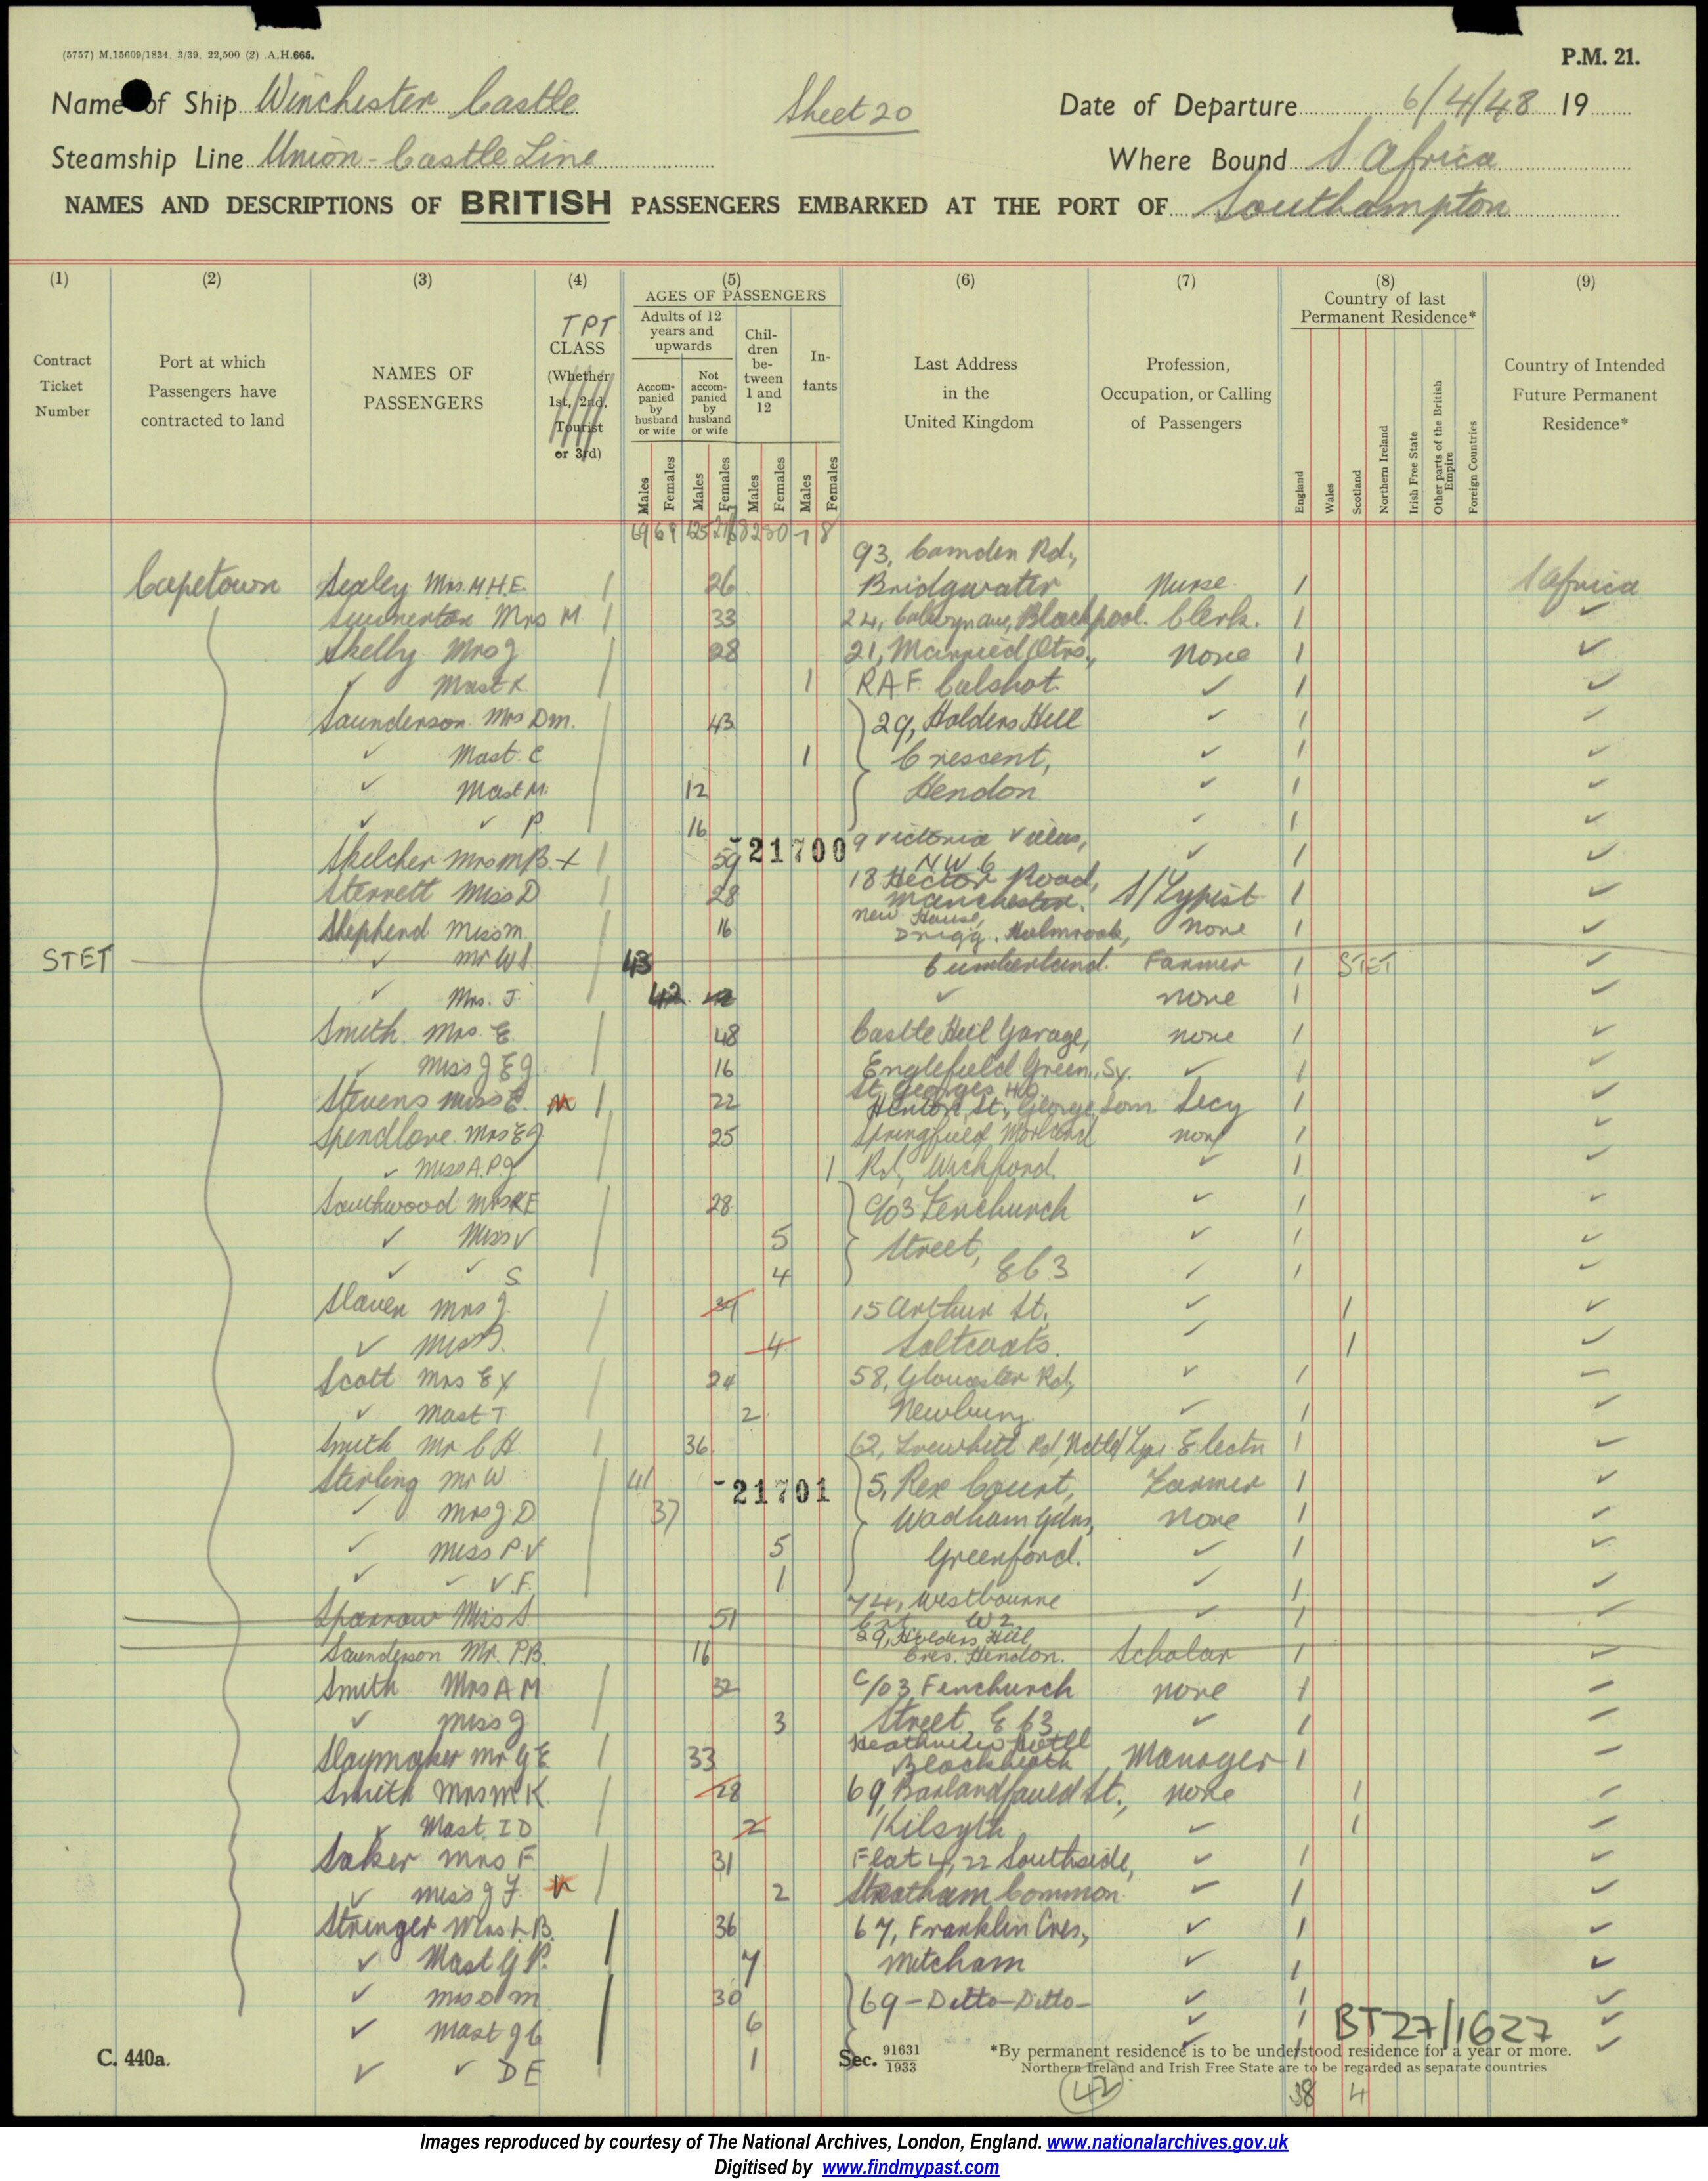 (5757) M.15609/1834. 3/39. 22,500 (2) A.H.665.
P.M. 21.
Name of Ship Winchester Castle
Sheet 20
Date of Departure 6/4/48 19
Steamship Line Union-Castle Line
Where Bound S Africa
NAMES AND DESCRIPTIONS OF BRITISH PASSENGERS EMBARKED AT THE PORT OF Southampton
(1) (2) (3) (4) (5) (6) (7) (8) (9)
Contract Ticket Number
Port at which Passengers have contracted to land
NAMES OF PASSENGERS
TPT
CLASS (Whether 1st, 2nd, Tourist or 3rd)
AGES OF PASSENGERS
Adults of 12 years and upwards
Accompanied by husband or wife
Not accompanied by husband or wife
Children between 1 and 12
Infants
Males Females Males Females Males Females Males Females
Last Address in the United Kingdom
Profession, Occupation, or Calling of Passengers
Country of last Permanent Residence*
England Wales Scotland Northern Ireland Irish Free State Other parts of the British Empire Foreign Countries
Country of Intended Future Permanent Residence*
69 69 125
93, Camden Rd,
Capetown Sealey Mrs M.H.E. / 26 Bridgwater Nurse / S Africa
Mrs M. / 33 24, Blackpool. Clerk. / ✓
Skelly Mrs J / 28 21, Married Qtrs., None / ✓
✓ Mast K / 1 RAF Calshot ✓ / ✓
Saunderson Mrs D M. / 43 29, Holders Hill ✓ / ✓
✓ Mast C / 1 Crescent, ✓ / ✓
✓ Mast M. / 12 Hendon ✓ / ✓
✓ ✓ P / 16 ✓ / ✓
21700
Skelcher Mrs M B + / 59 9 Victoria Villas, NW6 ✓ / ✓
Sterrett Miss D / 28 18 Hector Road, Manchester. S/Typist / ✓
Shepherd Miss M. / 16 New House, Drigg, Holmrook, None / ✓
STET ✓ Mr W S / 43 Cumberland. Farmer / STET ✓
✓ Mrs. J / 42 42 ✓ none / ✓
Smith Mrs. E / 48 Castle Hill Garage, none / ✓
✓ Miss J E G / 16 Englefield Green, Sy. ✓ / ✓
Stevens Miss E. / 22 St. Georges Ho. Henton St., George Som Secy / ✓
Spendlove Mrs E J / 25 Springfield none / ✓
✓ Miss A.P.J / 1 Rd, Wickford. ✓ / ✓
Southwood Mrs K E / 28 C/o 3 Fenchurch ✓ / ✓
✓ Miss V / 5 Street, ✓ / ✓
✓ ✓ S / 4 EC3 ✓ / ✓
Slaven Mrs J. / 34 15 Arthur St. ✓ / ✓
✓ Miss / 4 Saltcoats. ✓ / ✓
Scott Mrs E / 24 58, Gloucester Rd, ✓ / ✓
✓ Mast T / 2 Newbury ✓ / ✓
Smith Mr C H / 36 62, Rd, Electn / ✓
Sterling Mr W / 41 5, Rex Court, Farmer / ✓
21701
✓ Mrs J. D / 37 Wadham Gdns, None / ✓
✓ Miss P. V / 5 Greenford. ✓ / ✓
✓ ✓ V.F. / 1 ✓ / ✓
Sparrow Miss S 51 74, Westbourne W2. ✓ / ✓
Saunderson Mr. P.B. 16 29, Holders Hill Cres. Hendon. Scholar / ✓
Smith Mrs A M / 32 C/o 3 Fenchurch none / ✓
✓ Miss J / 3 Street, EC3 ✓ / ✓
Slaymaker Mr G E. / 33 Heathview Hotel Blackheath Manager / ✓
Smith Mrs M K. / 28 69, Barlandfauld St., none / ✓
✓ Mast. I D / 2 Kilsyth ✓ / ✓
Saker Mrs F. / 31 Flat 4, 22 Southside, ✓ / ✓
✓ Miss J F. / 2 Streatham Common ✓ / ✓
Stringer Mrs L.B. / 36 67, Franklin Cres., ✓ / ✓
✓ Mast G P. / 7 Mitcham ✓ / ✓
✓ Mrs D M / 30 69 - Ditto - Ditto - ✓ / ✓
✓ Mast J C / 6 ✓ / ✓
✓ ✓ D E / 1 ✓ / ✓
BT27/1627
C. 440a.
Sec. 91631/1933
*By permanent residence is to be understood residence for a year or more.
Northern Ireland and Irish Free State are to be regarded as separate countries
42
38 4
Images reproduced by courtesy of The National Archives, London, England. www.nationalarchives.gov.uk
Digitised by www.findmypast.com